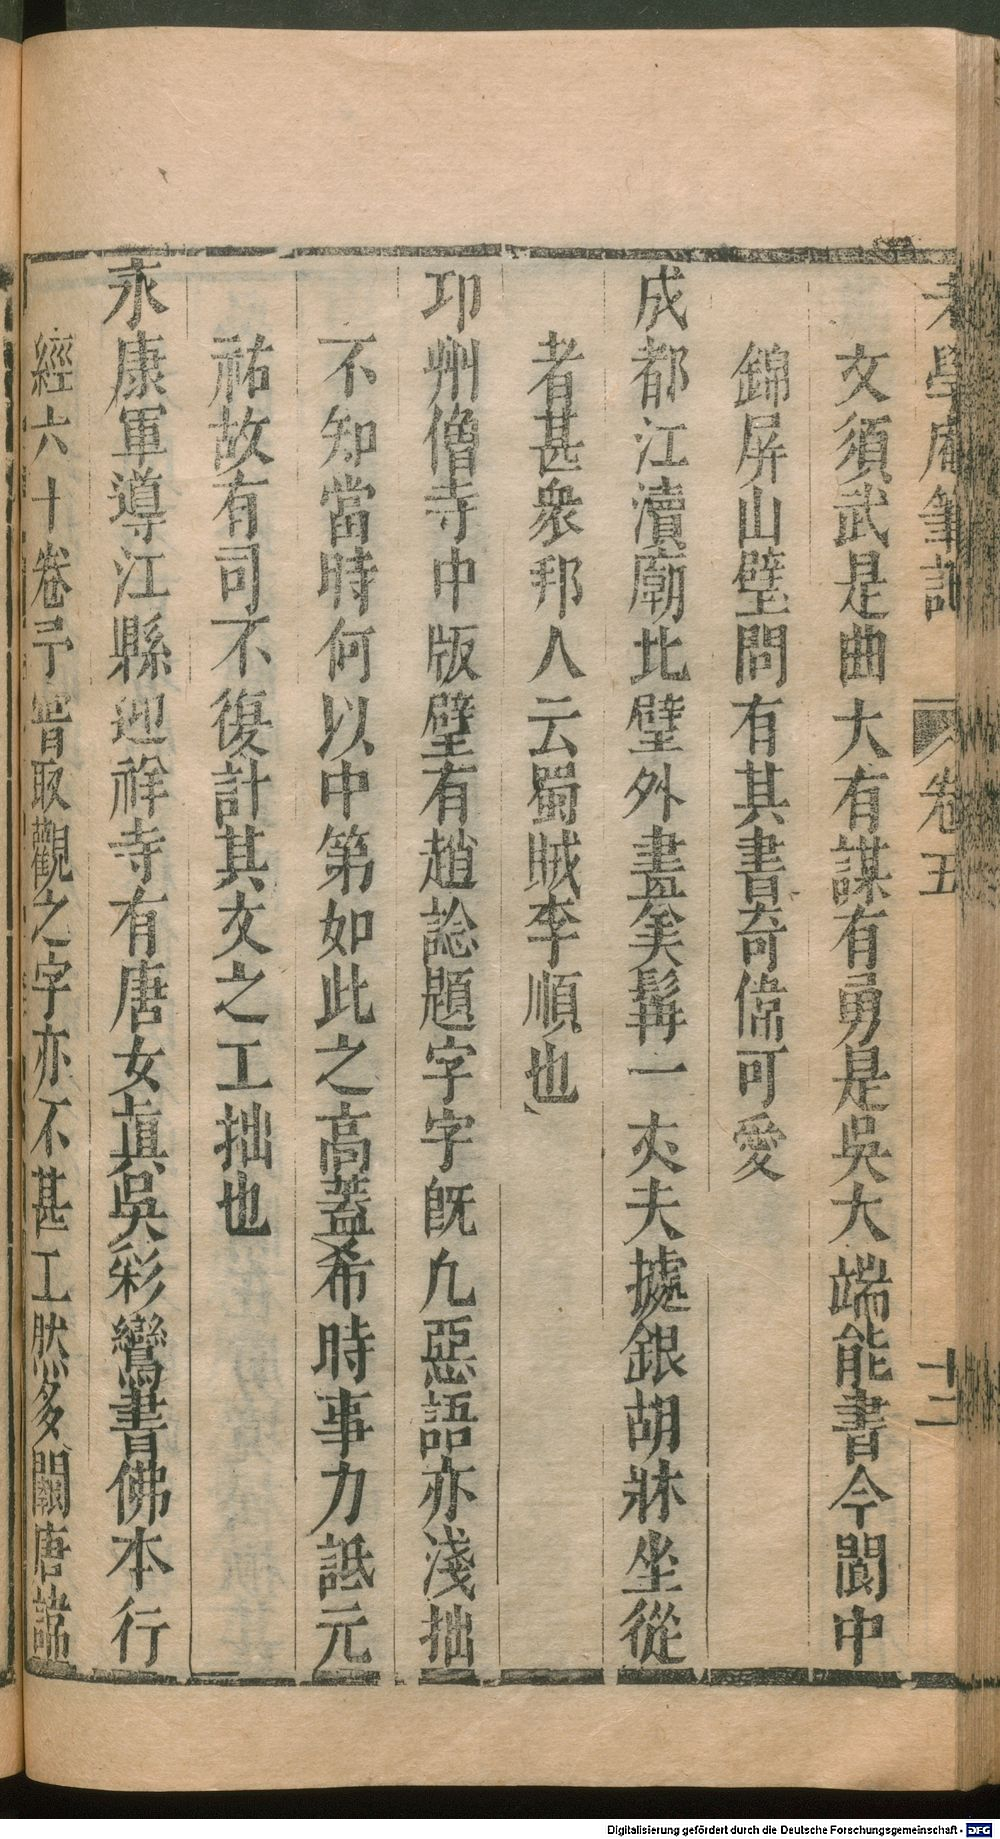 老學庵筆記 卷五 十二
文須武是曲大有謀有勇是吳大端能書今閬中
錦屏山壁間有其書奇偉可愛
成都江瀆廟北壁外畫美髯一丈夫據銀胡牀坐從
者甚衆邦人云蜀賊李順也
邛州僧寺中版壁有趙諗題字字旣凡惡語亦淺拙
不知當時何以中第如此之高蓋希時事力詆元
祐故有司不復計其文之工拙也
永康軍導江縣迎祥寺有唐女眞吳彩鸞書佛本行
經六十卷予嘗取觀之字亦不甚工然多闕唐諱
Digitalisierung gefördert durch die Deutsche Forschungsgemeinschaft - DFG